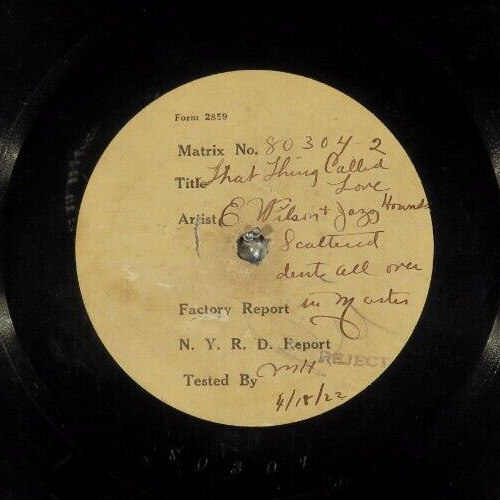 Form 2859
Matrix No. 80304-2
Title That Thing Called
Love
Artist E. Wilson + Jazz Hounds
Scattered
dents all over
Factory Report in Master
N. Y. R. D. Report
REJECT
Tested By MH
4/18/22
80304